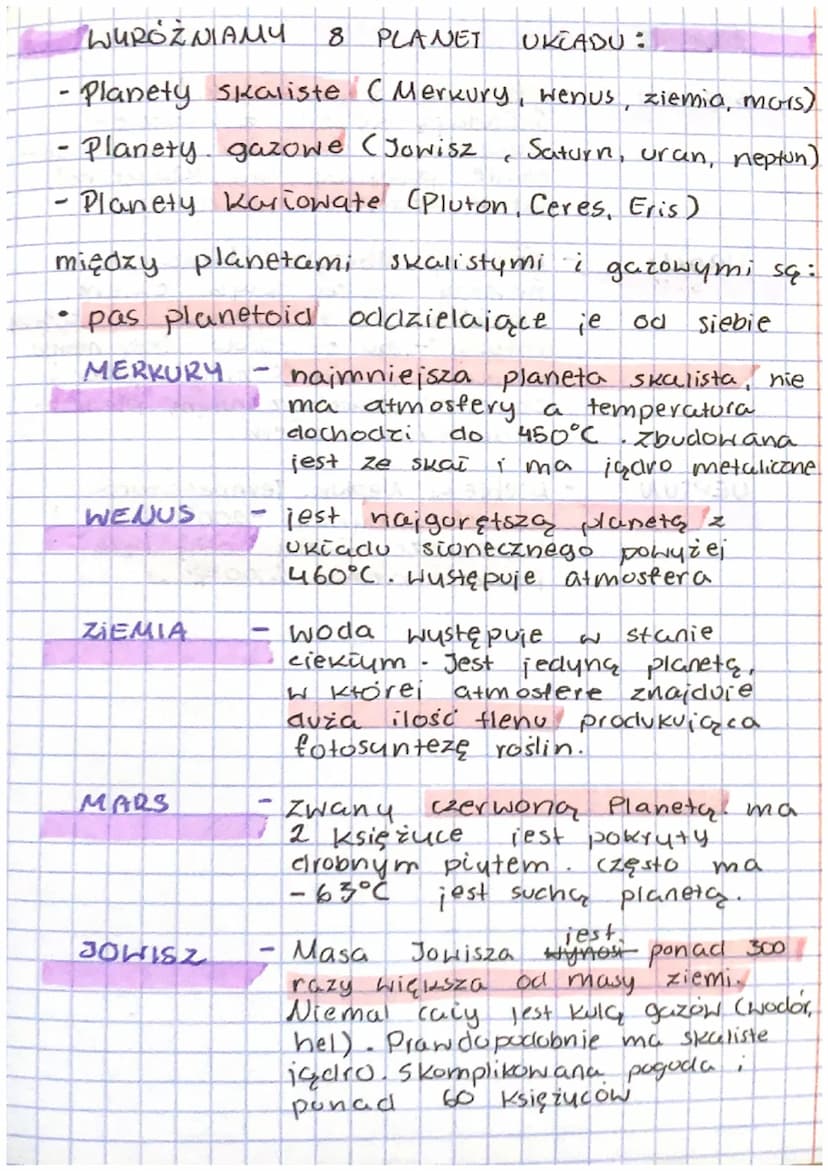 WYRÓŻNIAMY 8 PLANET UKŁADU:
- Planety skaliste (Merkury, Wenus, ziemia, mars)
- Planety gazowe (Jowisz, Saturn, uran, neptun)
- Planety karłowate (Pluton, Ceres, Eris)
między planetami skalistymi i gazowymi są:
• pas planetoid oddzielające je od siebie
MERKURY - najmniejsza planeta skalista, nie
ma atmosfery a temperatura
dochodzi do 450°C. Zbudowana
jest ze skał i ma jądro metaliczne
WENUS - jest najgorętszą planetą z
układu słonecznego powyżej
460°C. Występuje atmosfera
ZIEMIA - woda występuje w stanie
ciekłym. Jest jedyną planetą,
w której atmosfere znajduje
duża ilość tlenu produkująca
fotosyntezę roślin.
MARS - zwany czerwoną Planetą. ma
2 księżyce jest pokryty
drobnym pyłtem. często ma
-63°C jest suchą planetą.
JOWISZ - Masa Jowisza wynosi jest ponad 300
razy większa od masy ziemi.
Niemal cały jest kulą gazów (wodór,
hel). Prawdopodobnie ma skaliste
jądro. Skomplikowana pogoda i
ponad 60 księżyców